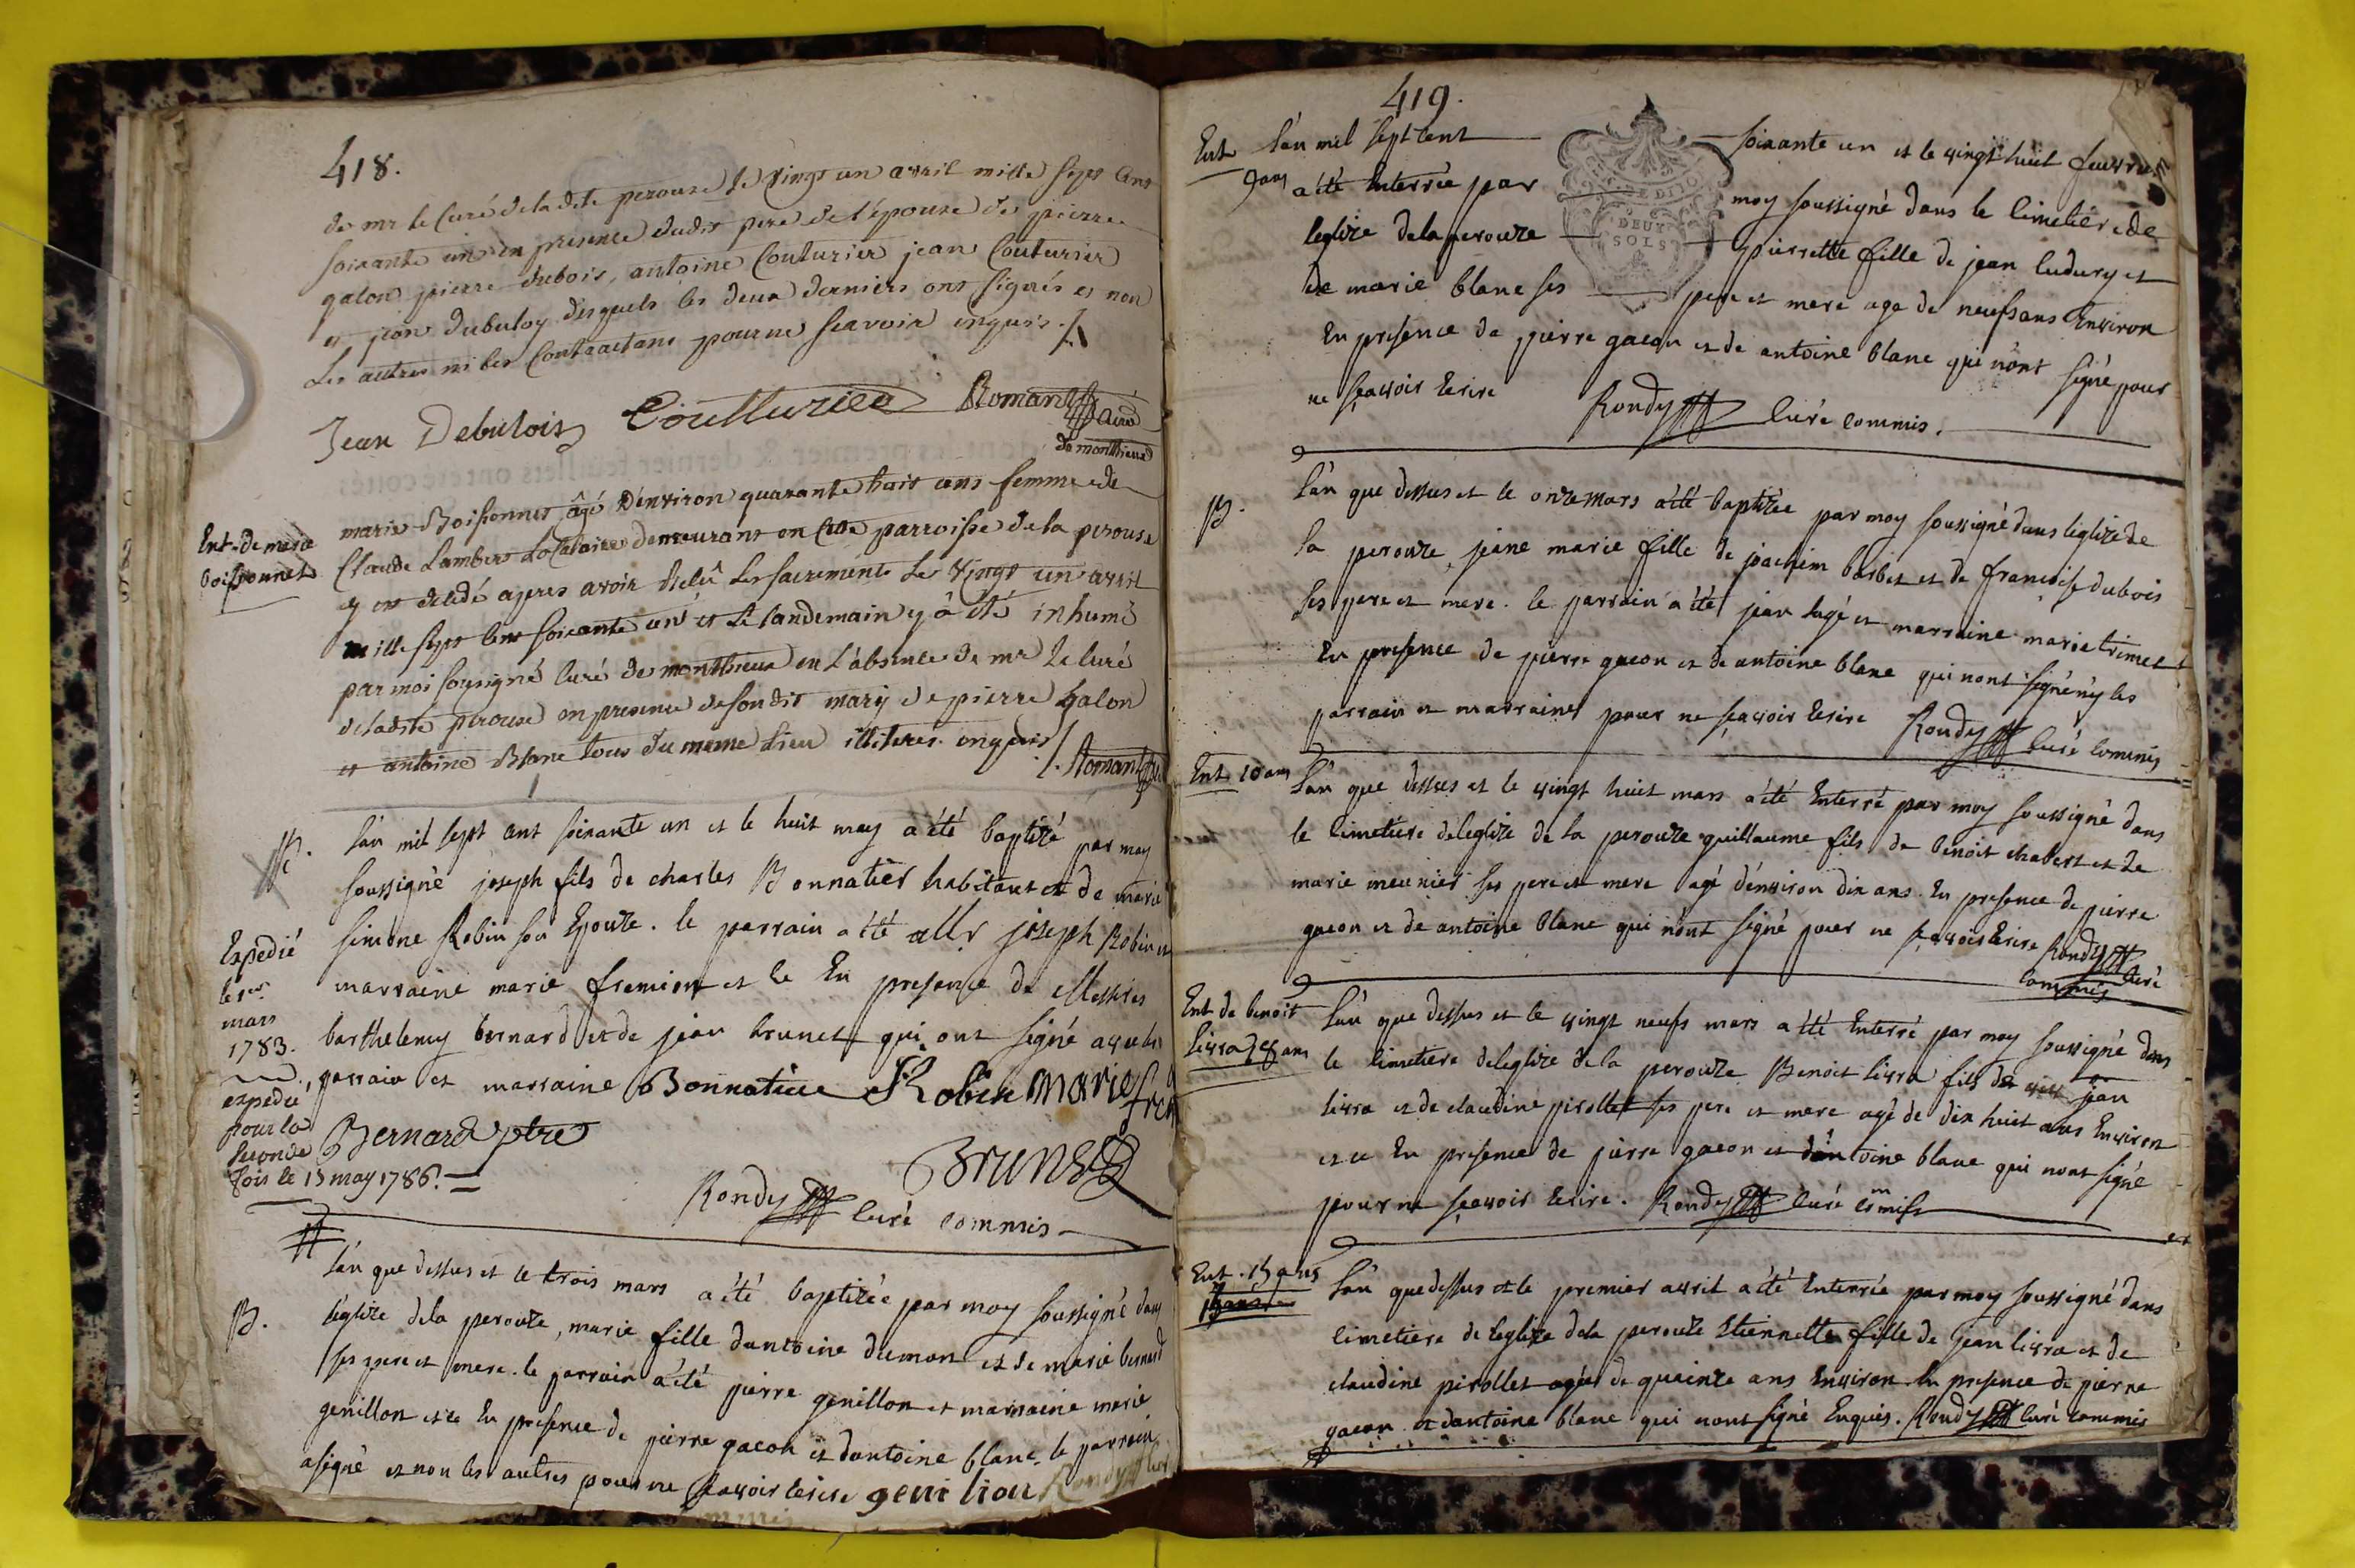 418.
de mr le Curé de la dite perouse le vingt un avril mille sept cens
soixante un en presence dudit pere de l'épouse de pierre
galon pierre dubois, antoine Couturier jean Couturier
et jean dubuloy desquels les deux derniers ont signés et non
les autres ni les Contractans pour ne scavoir enquis ./.
Jean Debulois Coutturiee Romant Curé
de monthieux
Ent. de marie
boissonnet
marie Boissonnet âgé d'environ quarante huit ans femme de
Claude Lambert Locataire demeurant en cette parroisse de la perouse
y est decedé apres avoir reçû les sacrements le vingt un avril
mille sept cent soixante un et le landemain y â été inhumé
par moi sousigné curé de monthieux en l'absence de mr le curé
de ladite perouse en presence de son dit mary de pierre galon
et antoine Blanc tous du meme lieu illiteres enquis ./. Romant
B.
l'an mil sept cent soixante un et le huit may a été baptizé par moy
soussigné joseph fils de charles Bonnatier habitant et de marie
simone Robin son Epouze. le parrain a été Mr joseph Robin et
marraine marie fremion et ce En presence de Messires
barthelemy bernard et de jean brunet qui ont signé avec les
parrain et marraine Bonnatier Robin marie frem
Expedié
le 1er
mars
1783.
expedié
pour la
seconde
fois le 15 may 1786.
Bernard ptre
Brunet
Rondy curé commis
B.
l'an que dessus et le trois mars a été baptizée par moy soussigné dans
l'eglize de la perouze, marie fille d'antoine dumont et de marie bernard
ses pere et mere. le parrain a été pierre genillon et marraine marie
genillon et ce En presence de pierre gacon et d'antoine blanc. le parrain
a signé et non les autres pour ne scavoir ecrire genilion Rondy
419.
Ent
9 ans
l'an mil sept cent soixante un et le vingt huit fevrier
a été Enterrée par moy soussigné dans le cimetiere de
leglize de la perouze pierrette fille de jean ludury et
de marie blanc ses pere et mere age de neufs ans Environ
En presence de pierre gacon et de antoine blanc qui n'ont signé pour
ne sçavoir ecrire Rondy curé commis.
B.
l'an que dessus et le onze mars a été baptizée par moy soussigné dans leglize de
la perouze, jeane marie fille de joachim barbet et de francoise dubois
ses pere et mere. le parrain a été jean lagé et marraine marie trimet
En presence de pierre gacon et de antoine blanc qui nont signé ny les
parrain et marraine pour ne sçavoir ecrire Rondy curé commis
Ent 10 ans
l'an que dessus et le vingt huit mars a été Enterré par moy soussigné dans
le cimetiere de leglize de la perouze guillaume fils de benoit chabert et de
marie meunier ses pere et mere agé d'environ dix ans. En presence de pierre
gacon et de antoine blanc qui n'ont signé pour ne sçavoir ecrire Rondy curé
commis
Ent de benoit
livra 18 ans
l'an que dessus et le vingt neufs mars a été Enterré par moy soussigné dans
le cimetiere de leglize de la perouze Benoit livra fils de jean
livra et de claudine pirollet ses pere et mere agé de dix huit ans Environ
et ce En presence de pierre gacon et d'antoine blanc qui nont signé
pour ne sçavoir ecrire. Rondy curé commis
Ent. 15 ans
15 ans
l'an que dessus et le premier avril a été Enterrée par moy soussigné dans
cimetiere de leglize de la perouze Etiennette fille de jean livra et de
claudine pirollet agée de quainze ans Environ En presence de pierre
gacon et d'antoine blanc qui nont signé Enquis. Rondy curé commis
DEUX
SOLS